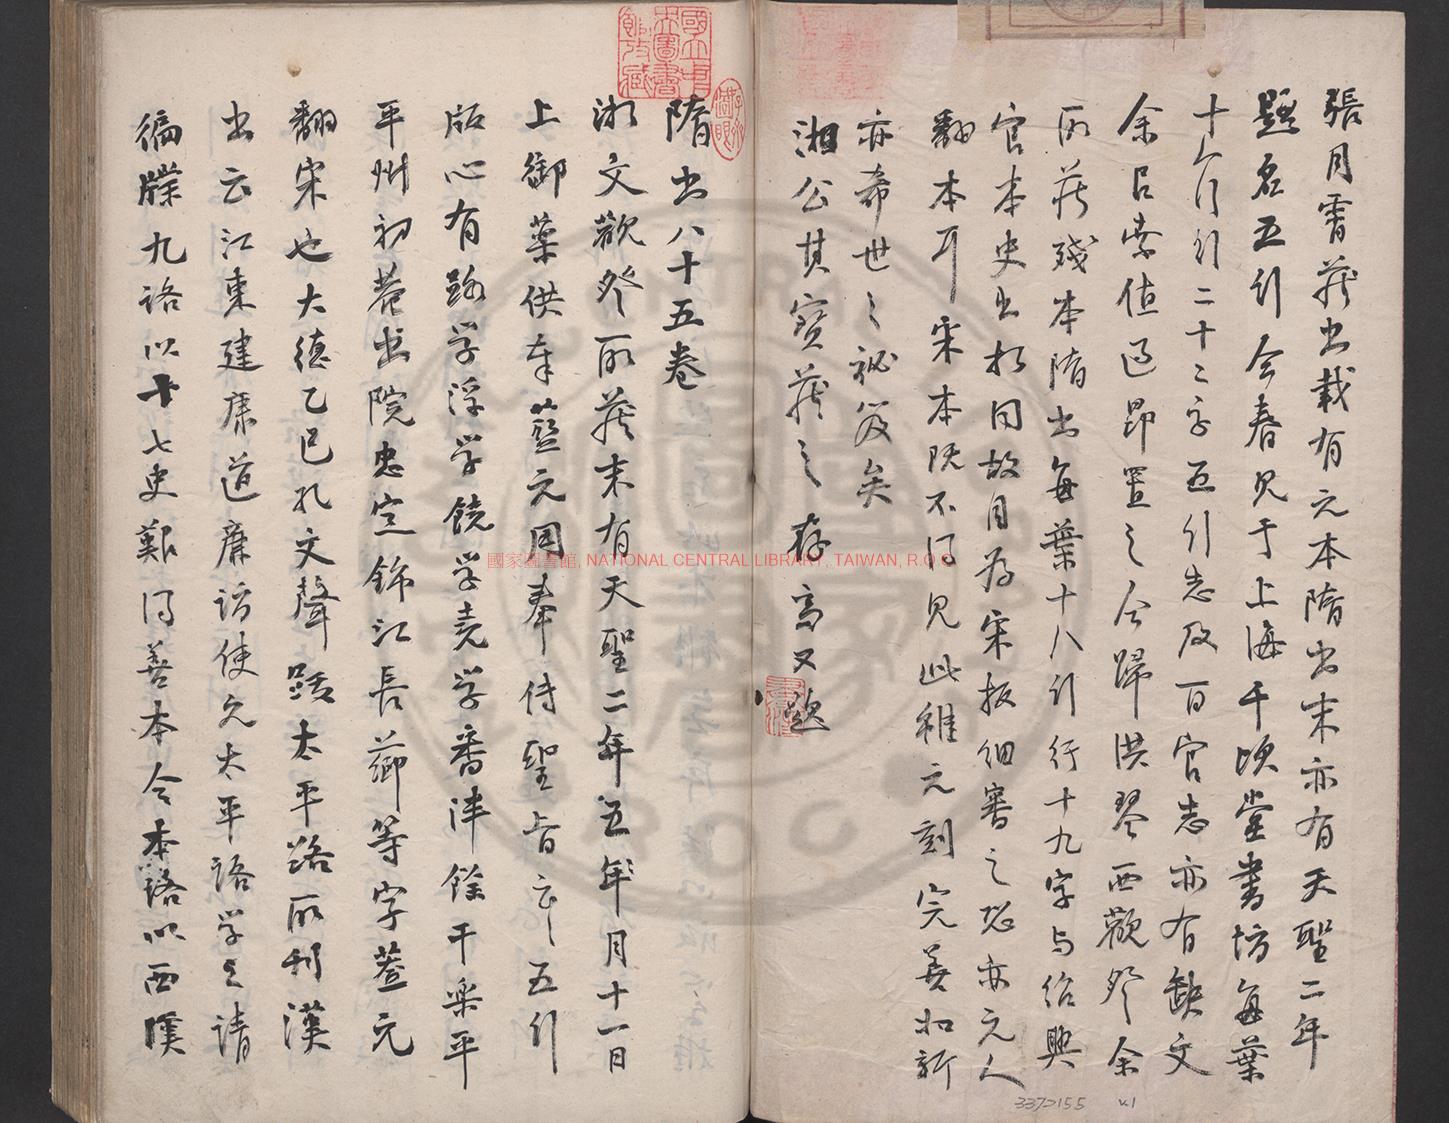 張月霄藏书载有元本隋书末亦有天聖二年
題名五行今春見于上海千頃堂書坊每葉
十八行行二十二字五行志及百官志亦有缺文
余以索值過昂置之今歸洪琴西觀察余
所藏殘本隋书每葉十八行行十九字与紹興
官本史书相同故目为宋板細審之恐亦元人
翻本耳宋本既不得見此種元刻完善如新
亦希世之祕笈矣
湘公其寶藏之 存齋又題
隋书八十五卷
湘文觀察所藏末有天聖二年五年月十一日
上御藥供奉藍元用奉传聖旨云云五行
版心有路学浮学饒学堯学番泮餘干樂平
平州初菴书院忠定錦江長薌等字蓋元
翻宋也大德乙巳孔文聲跋太平路所刊漢
书云江東建康道廉訪使允太平路学之請
徧牒九路以十七史艱得善本今本路以西漢
國家圖書館, NATIONAL CENTRAL LIBRARY, TAIWAN, R.O.C
337155 v.1